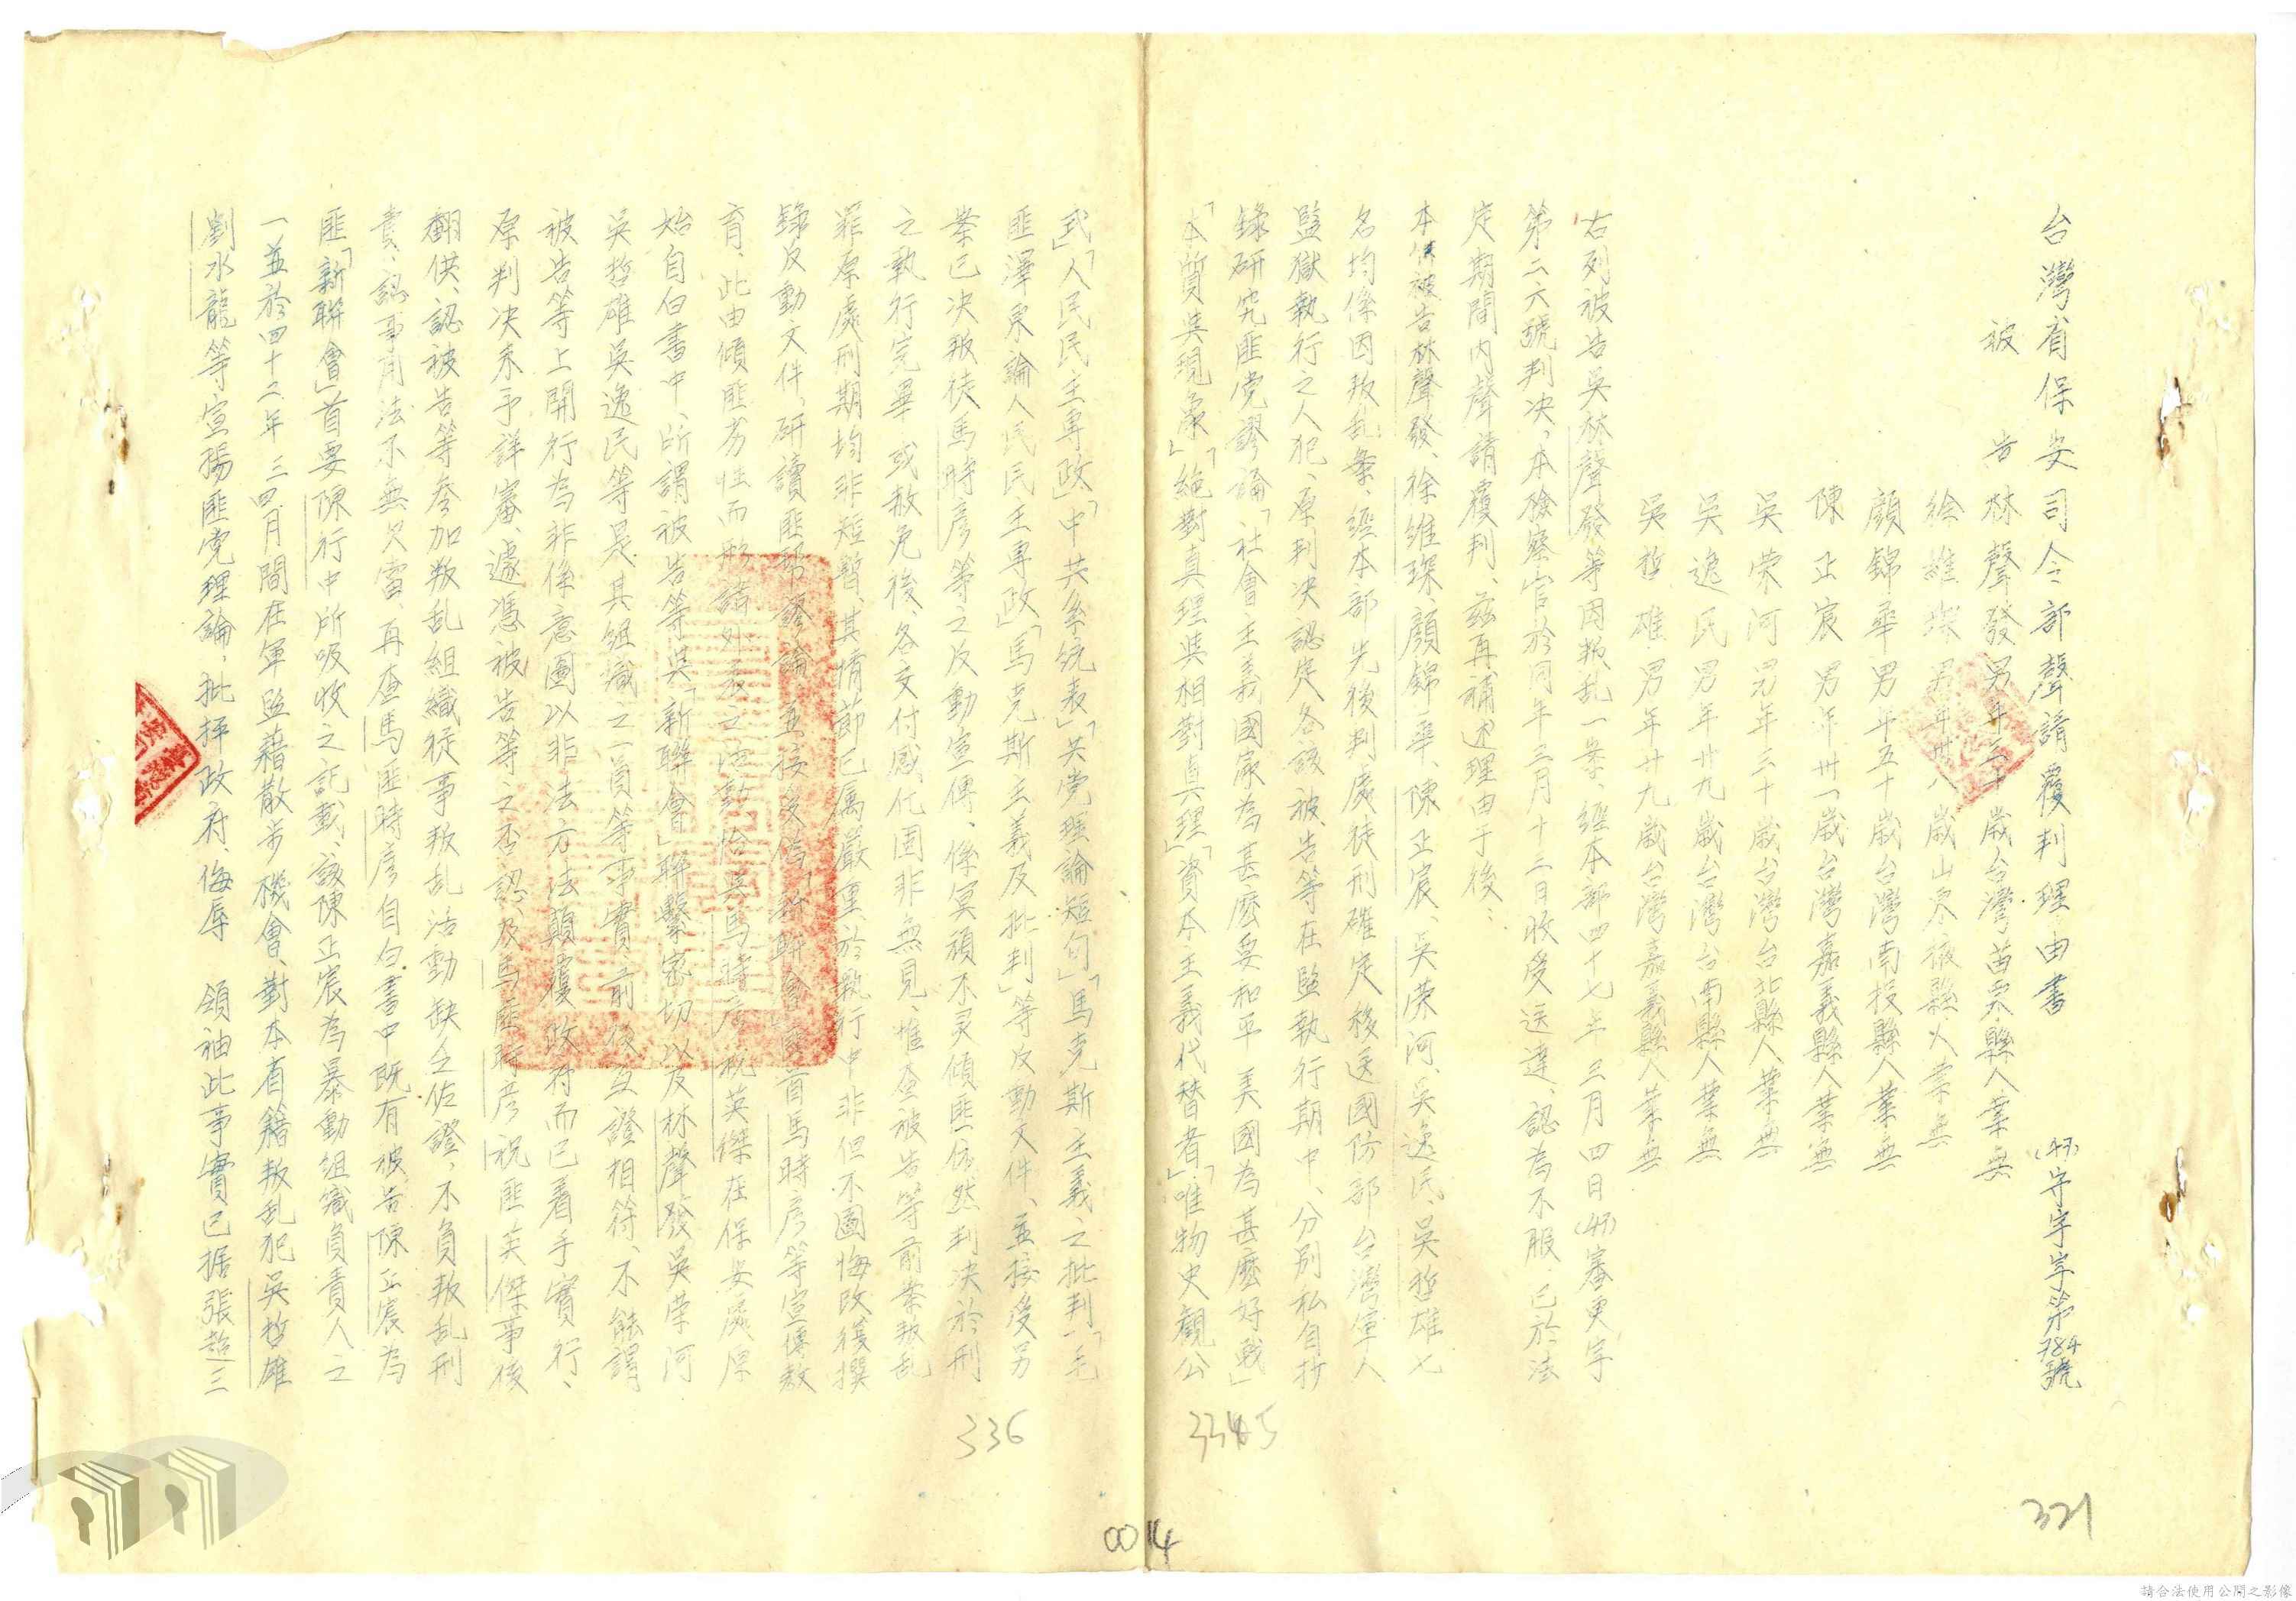 台灣省保安司令部聲請覆判理由書
(47)守字第784號
被告 林聲發 男年三十歲台灣苗栗縣人業無
徐維琛 男年卅八歲山東掖縣人業無
顏錦華 男年五十歲台灣南投縣人業無
陳正宸 男年卅一歲台灣嘉義縣人業無
吳榮河 男年三十歲台灣台北縣人業無
吳逸民 男年廿九歲台灣台南縣人業無
吳哲雄 男年廿九歲台灣嘉義縣人業無
右列被告吳林聲發等因叛乱一案、經本部四十七年三月四日(47)審更字
第二六號判决、本檢察官於同年三月十三日收受送達、認為不服、已於法
定期間內聲請覆判、茲再補述理由于後：
本件被告林聲發、徐維琛、顏錦華、陳正宸、吳榮河、吳逸民、吳哲雄七
名均係因叛乱案、經本部先後判處徒刑確定移送國防部台灣軍人
監獄執行之人犯、原判决認定各該被告等在監執行期中、分別私自抄
錄研究匪党謬論「社會主義國家為甚麼要和平 美國為甚麼好戰」
「本質與現象」「絕對真理與相對真理」「資本主義代替者」「唯物史觀公
式」「人民民主專政」「中共系統表」「共党理論短句」「馬克斯主義之批判」「毛
匪澤東論人民民主專政」「馬克斯主義及批判」等反動文件、並接受另
案已决叛徒馬時彥等之反動宣傳、係冥頑不灵傾匪依然判决於刑
之執行完畢或赦免後、各交付感化固非無見、惟查被告等前案叛乱
罪原處刑期均非短暫、其情節已属嚴重、於執行中非但不圖悔改復撰
錄反動文件、研讀匪邦謬論、並接受偽「新聯會」匪首馬時彥等宣傳教
育、此由傾匪劣性而形諸外表之活動恰與馬時彥祝英傑在保安處原
始自白書中、所謂被告等與「新聯會」聯繫密切以及林聲發吳榮河
吳哲雄吳逸民等是其組織之一員等事實、前後互證相符、不能謂
被告等上開行為非係意圖以非法方法顛覆政府而已着手實行、
原判决未予詳審、遽憑被告等之否認、及馬匪時彥祝匪英傑事後
翻供、認被告等参加叛乱組織從事叛乱活動缺乏佐證、不負叛乱刑
責、認事用法不無欠當、再查馬匪時彥自白書中既有被告陳正宸為
匪「新聯會」首要陳行中所吸收之記載、該陳正宸為暴動組織負責人之
一並於四十二年三四月間在軍監藉散步機會、對本省籍叛乱犯吳哲雄
劉水龍等宣揚匪党理論、批抨政府、侮辱 領袖此事實已据張超三
336
3345
0014
321
請合法使用公開之影像